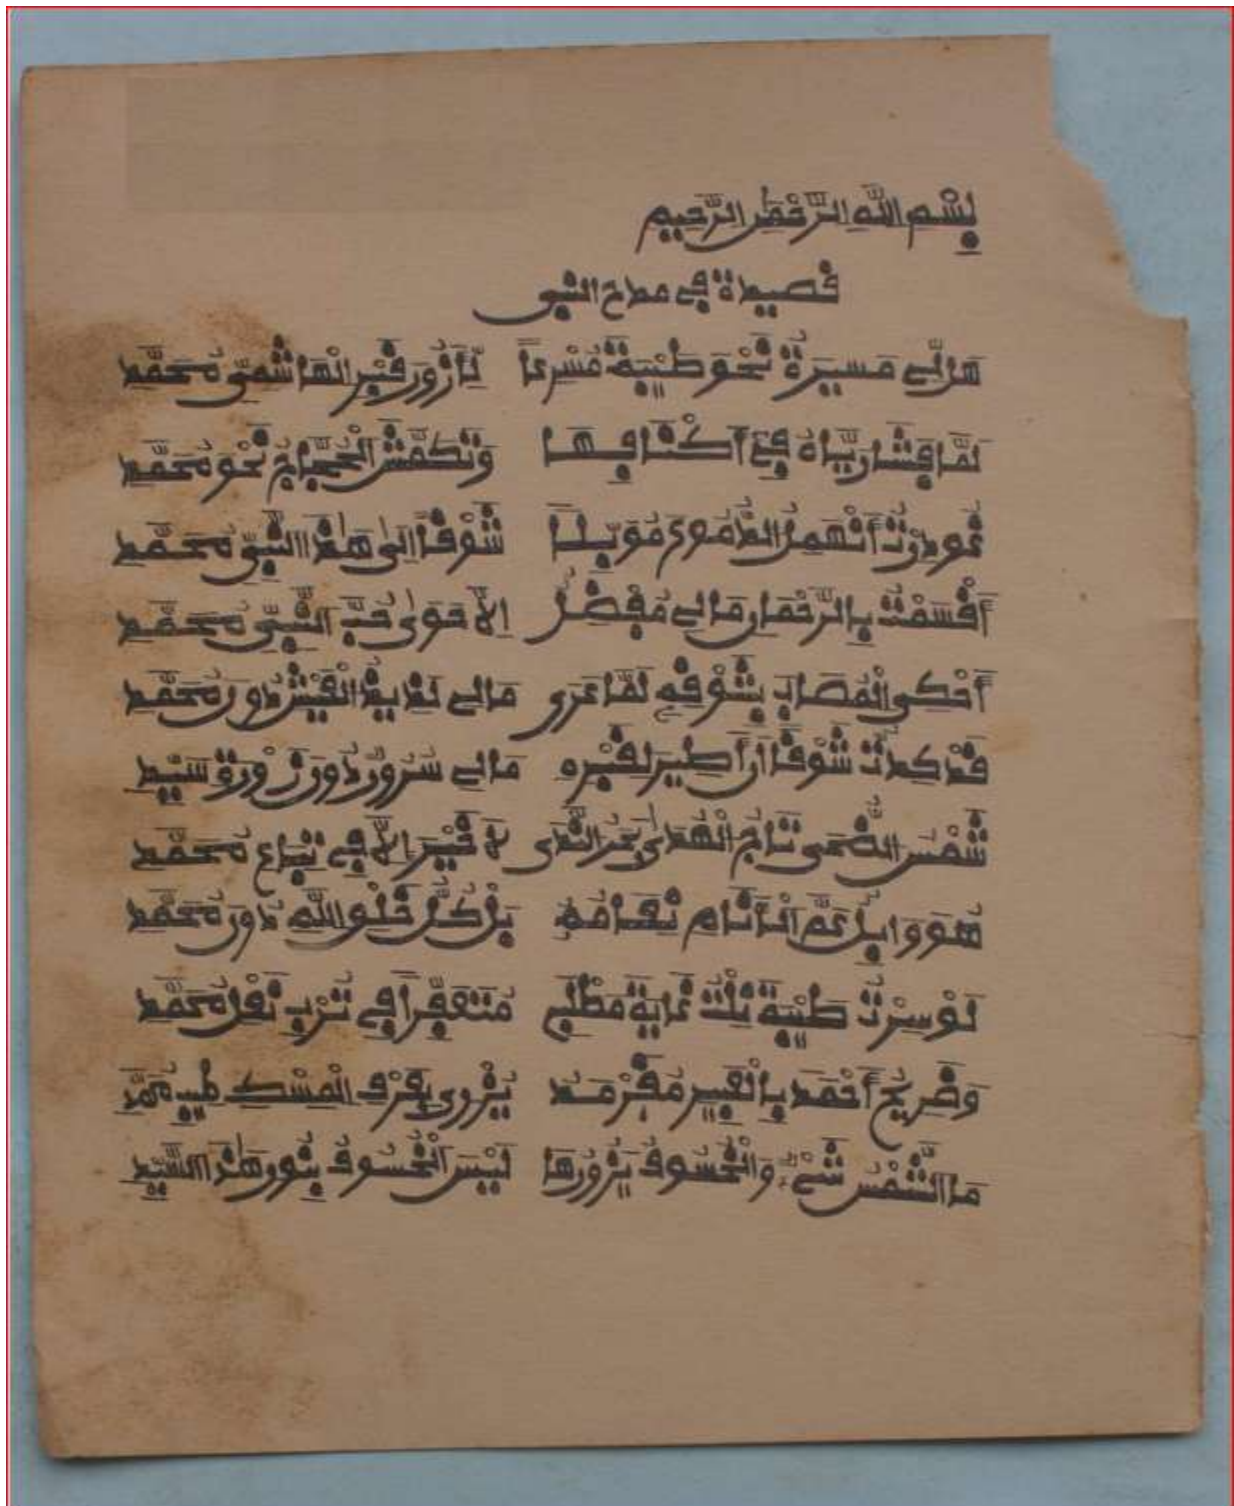 بِسْمِ اللَّهِ الرَّحْمَنِ الرَّحِيمِ
قصيدة في مدح النبي
هل لي مسيرة نحو طيبة مسرعا لأزور قبر الهاشمي محمد
لما فشا رياه في أكنافها وتكمش الحجاج نحو محمد
غودرت أنهمل الدموع موبلا شوقا إلى هذا النبي محمد
أقسمت بالرحمان مالي مفصل إلا حوى حب النبي محمد
أحكي المصاب بشوقه لما عرى مالي لذيذ العيش دون محمد
قد كدت شوقا أن أطير لقبره مالي سرور دون زورة سيد
شمس الضحى تاج الهدى بحر الندى لا خير إلا في تباع محمد
هو وابل عم الأنام نعامه بل كل خلق الله دون محمد
لو سرت طيبة نلت غاية مطلبي متعفرا في ترب نعل محمد
وضريح أحمد بالعبير مقرمد يزري بعرف المسك طيب محمد
ما الشمس شيء والخسوف يزورها ليس الخسوف بنور هذا السيد